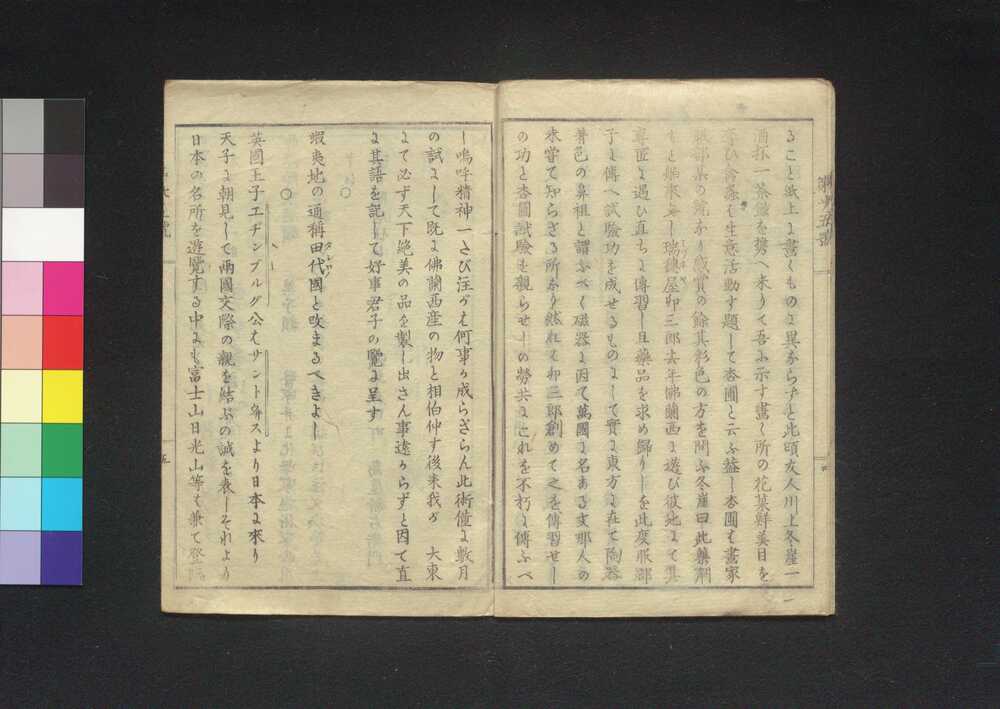 ることと紙上に畫くものに異ならずと此頃友人川上冬崖一
酒杯一茶鍾を携へ來りて吾に示す畫く所の花菓鮮美目を
奪ひ禽虫は生意活動す題して杏圃と云ふ蓋し杏圃は畫家
服部某の號なり感賞の餘其彩色の方を問ふ冬崖曰此藥劑
もと舶來品瑞穂屋卯三郎去年佛蘭西に遊び彼地にて其
専匠に遇ひ直ちに傳習し且藥品を求め歸りしを此度服部
子に傳へ試驗功を成せるものにして實に東方に在て陶器
著色の鼻祖と謂ふべく磁器に因て萬國に名ある支那人の
未嘗て知らざる所なり然れは卯三郎創めて之を傳習せし
の功と杏圃試驗を観らせしの勞共にこれを不朽に傳ふべ
し嗚呼精神一たび注がば何事か成らざらん此術僅に數月
の試にして既に佛蘭西産の物と相伯仲す後来我が 大東
にて必ず天下絶美の品を製し出さん事遠からずと因て直
に其語を記して好事君子の覽に呈す
○
蝦夷地の通稱田代國と改まるべきよし
○
英國王子エヂンブルグ公はサントウ井スより日本に來り
天子に朝見して兩國交際の親を結ぶの誠を表しそれより
日本の名所を遊覽する中にも富士山日光山等は兼て登
五